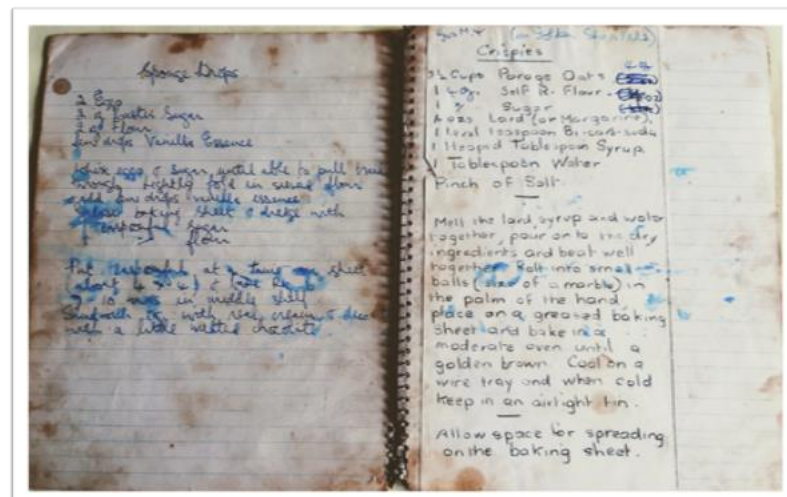 Sponge Drops
2 Eggs
3 oz Caster Sugar
Flour
Few drops Vanilla Essence
Whisk eggs & sugar until able to pull
through lightly fold in sieved flour
add few drops vanilla essence
baking sheet & dredge with
teaspoonful sugar
flour
Put teaspoonful at a time on sheet
(about 4 x 4) &
10 mins in middle shelf
Sandwich tog. with real cream &
with a little melted chocolate.
Crispies
Cups Porage Oats
Self R. Flour
Sugar
4 ozs Lard (or Margarine).
1 level teaspoon Bi-carb-soda
1 Heaped Tablespoon Syrup
1 Tablespoon Water
Pinch of Salt.
Melt the lard, syrup and water
together, pour on to the dry
ingredients and beat well
together. Roll into small
balls (size of a marble) in
the palm of the hand,
place on a greased baking
sheet and bake in a
moderate oven until a
golden brown. Cool on a
wire tray and when cold
keep in an airtight tin.
Allow space for spreading
on the baking sheet.